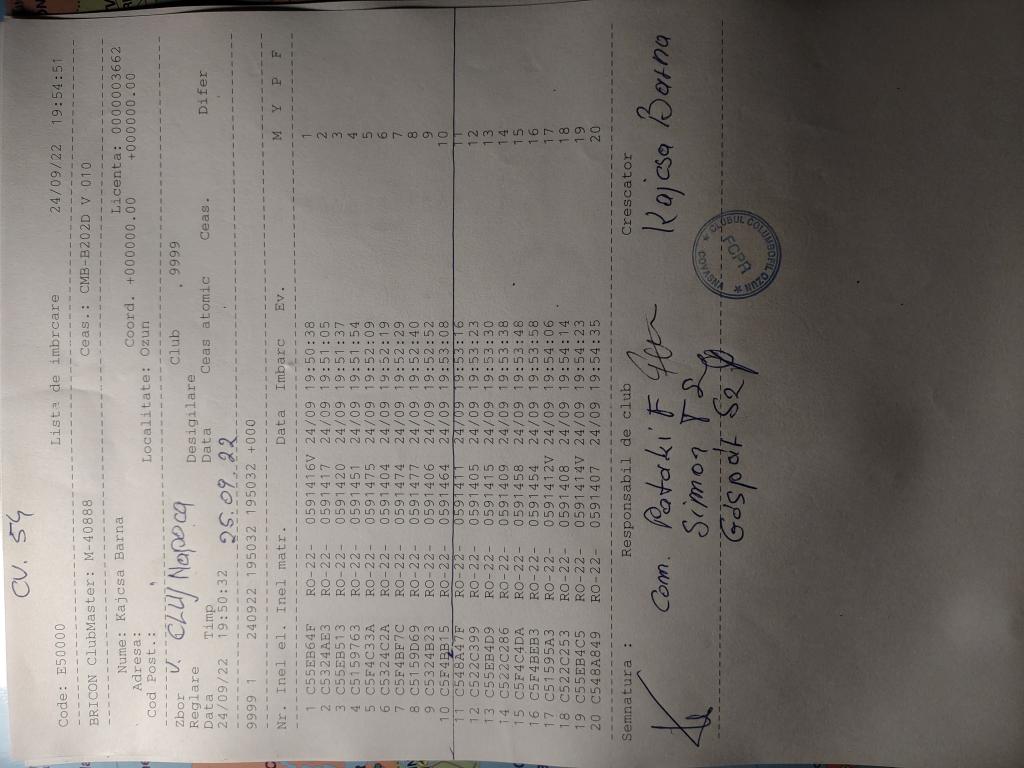 CV. 54
Code: E50000 Lista de imbrcare 24/09/22 19:54:51
BRICON ClubMaster: M-40888 Ceas.: CMB-B202D V 010
Nume: Kajcsa Barna Licenta: 0000003662
Adresa: Coord. +000000.00 +0000000.00
Cod Post.: Localitate: Ozun
Zbor V. CLUJ Napoca Club 9999
Reglare Desigilare
Data Timp Data Ceas atomic Ceas. Difer
24/09/22 19:50:32 25.09.22
9999 1 240922 195032 195032 +000
Nr. Inel el. Inel matr. Data imbarc Ev. M Y P F
1 C55EB64F RO-22- 0591416V 24/09 19:50:38 1
2 C5324AE3 RO-22- 0591417 24/09 19:51:05 2
3 C55EB513 RO-22- 0591420 24/09 19:51:37 3
4 C5159763 RO-22- 0591451 24/09 19:51:54 4
5 C5F4C33A RO-22- 0591475 24/09 19:52:09 5
6 C5324C2A RO-22- 0591404 24/09 19:52:19 6
7 C5F4BF7C RO-22- 0591474 24/09 19:52:29 7
8 C5159D69 RO-22- 0591477 24/09 19:52:40 8
9 C5324B23 RO-22- 0591406 24/09 19:52:52 9
10 C5F4BB15 RO-22- 0591464 24/09 19:53:08 10
11 C548A47F RO-22- 0591411 24/09 19:53:16 11
12 C522C399 RO-22- 0591405 24/09 19:53:23 12
13 C55EB4D9 RO-22- 0591415 24/09 19:53:30 13
14 C522C286 RO-22- 0591409 24/09 19:53:38 14
15 C5F4C4DA RO-22- 0591458 24/09 19:53:48 15
16 C5F4BEB3 RO-22- 0591454 24/09 19:53:58 16
17 C51595A3 RO-22- 0591412V 24/09 19:54:06 17
18 C522C253 RO-22- 0591408 24/09 19:54:14 18
19 C55EB4C5 RO-22- 0591414V 24/09 19:54:23 19
20 C548A849 RO-22- 0591407 24/09 19:54:35 20
Semnatura : Responsabil de club Crescator
Com. Pataki F Kajcsa Barna
Simon T
Gáspár Sz
CLUBUL COLUMBOFIL OZUN
FCPR